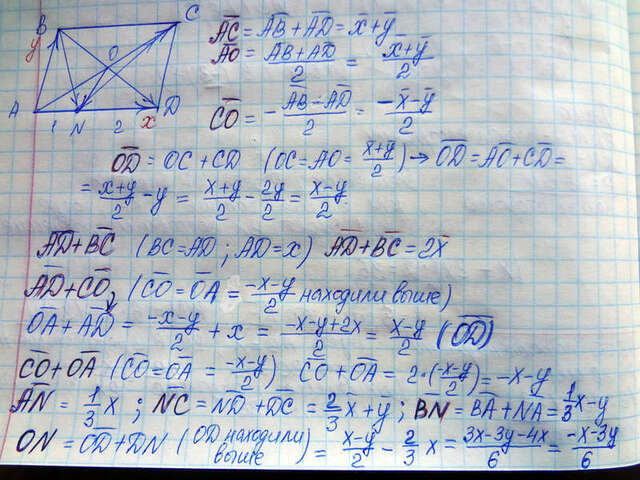 B C
y
O
A D
1 N 2 x
A̅C̅ = A̅B̅ + A̅D̅ = x̅ + y̅
A̅O̅ = (A̅B̅ + A̅D̅)/2 = (x̅ + y̅)/2
C̅O̅ = -(A̅B̅ - A̅D̅)/2 = (-x̅ - y̅)/2
O̅D̅ = OC + CD (OC = AO = (x̅+y̅)/2) → O̅D̅ = A̅O̅ + C̅D̅ =
= (x̅+y̅)/2 - y = (x̅+y̅)/2 - 2y̅/2 = (x̅-y̅)/2
A̅D̅ + B̅C̅ (BC = AD ; AD = x) A̅D̅ + B̅C̅ = 2x̅
A̅D̅ + C̅O̅ (C̅O̅ = O̅A̅ = (-x-y)/2 находили выше)
OA + AD = (-x-y)/2 + x = (-x-y+2x)/2 = (x-y)/2 (O̅D̅)
C̅O̅ + O̅A̅ (C̅O̅ = O̅A̅ = (-x-y)/2) C̅O̅ + O̅A̅ = 2·((-x-y)/2) = -x-y
A̅N̅ = 1/3 x ; N̅C̅ = N̅D̅ + D̅C̅ = 2/3 x̅ + y̅ ; BN = B̅A̅ + NA = 1/3 x - y
ON = O̅D̅ + DN (OD находили выше) = (x-y)/2 - 2/3 x = (3x-3y-4x)/6 = (-x-3y)/6